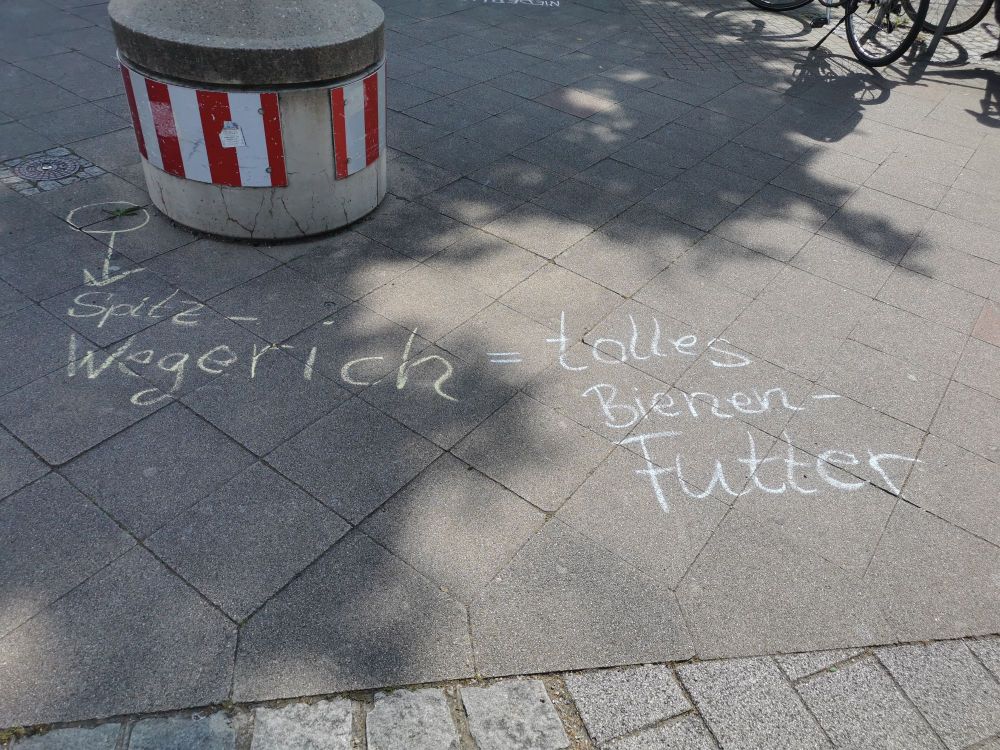 Spitz-
Wegerich = tolles
Bienen-
Futter